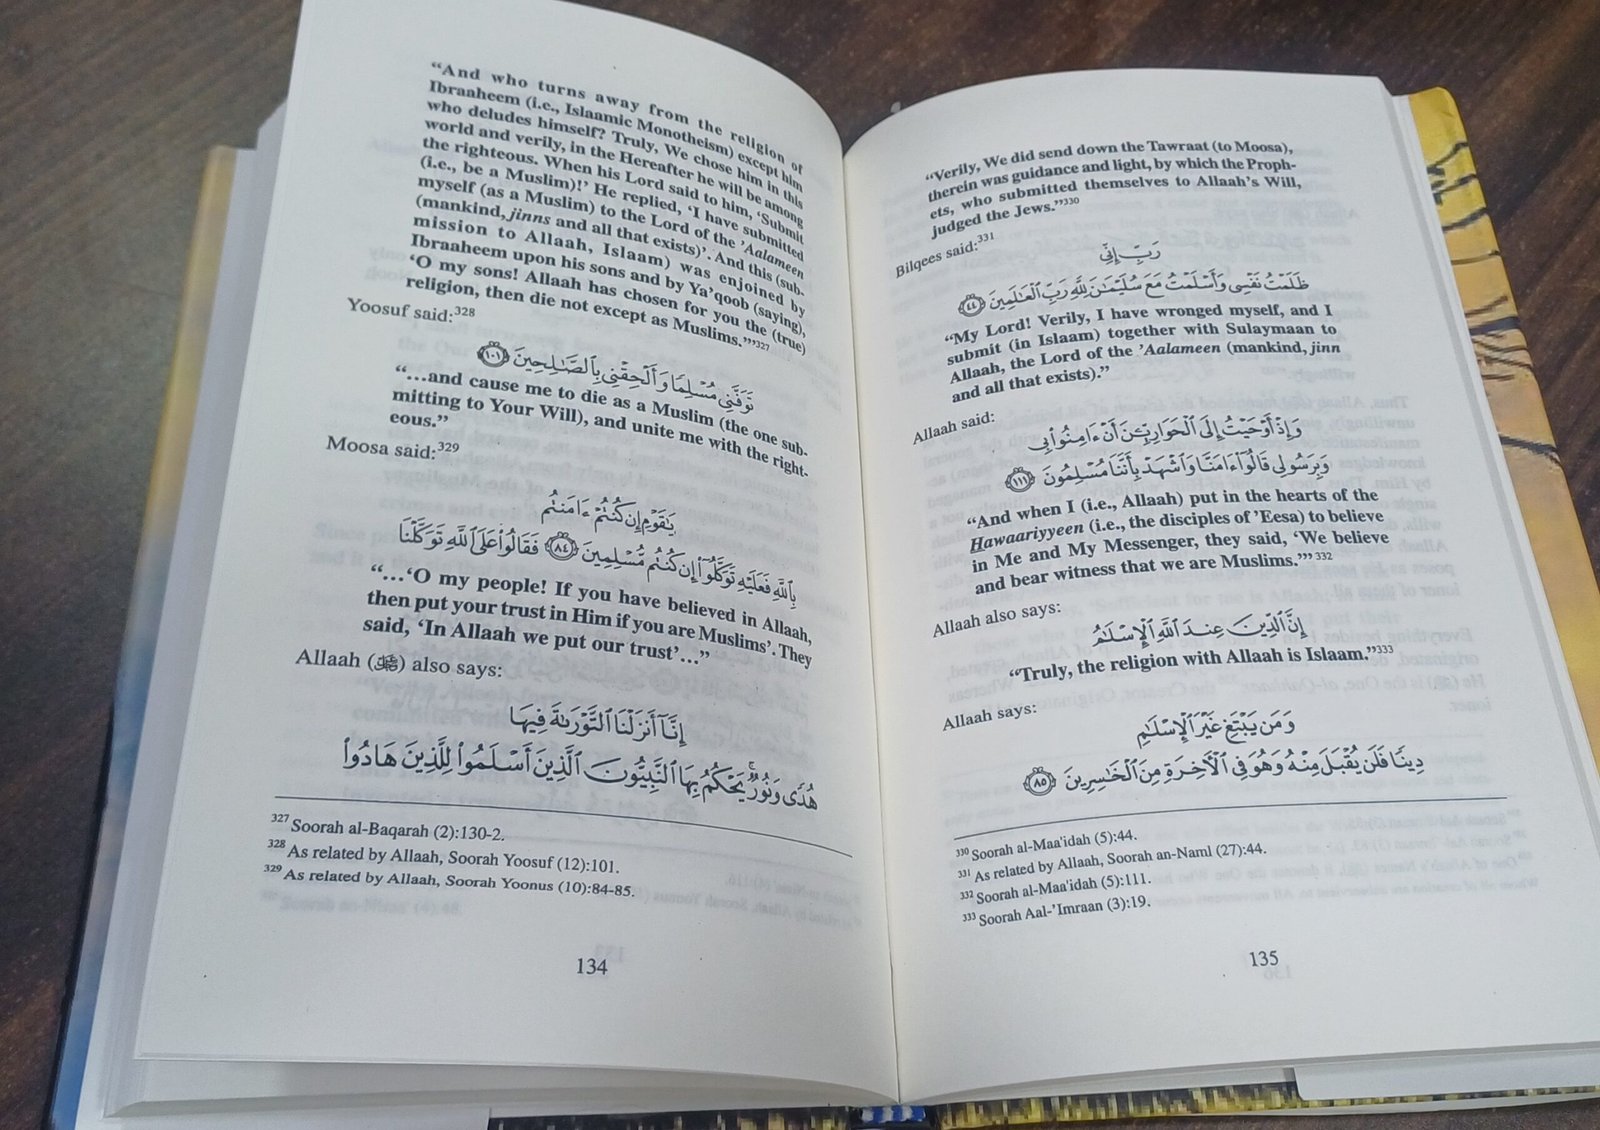 “And who turns away from the religion of
Ibraaheem (i.e., Islaamic Monotheism) except him
who deludes himself? Truly, We chose him in this
world and verily, in the Hereafter he will be among
the righteous. When his Lord said to him, ‘Submit
(i.e., be a Muslim)!’ He replied, ‘I have submitted
myself (as a Muslim) to the Lord of the ’Aalameen
(mankind, jinns and all that exists)’. And this (sub-
mission to Allaah, Islaam) was enjoined by
Ibraaheem upon his sons and by Ya’qoob (saying),
‘O my sons! Allaah has chosen for you the (true)
religion, then die not except as Muslims.’”327
Yoosuf said:328
تَوَفَّنِي مُسْلِمًا وَأَلْحِقْنِي بِٱلصَّـٰلِحِينَ ١٠١
“…and cause me to die as a Muslim (the one sub-
mitting to Your Will), and unite me with the right-
eous.”
Moosa said:329
يَـٰقَوْمِ إِن كُنتُمْ ءَامَنتُم
بِٱللَّهِ فَعَلَيْهِ تَوَكَّلُوٓا۟ إِن كُنتُم مُّسْلِمِينَ ٨٤ فَقَالُوا۟ عَلَى ٱللَّهِ تَوَكَّلْنَا
“…‘O my people! If you have believed in Allaah,
then put your trust in Him if you are Muslims’. They
said, ‘In Allaah we put our trust’…”
Allaah (ﷻ) also says:
إِنَّآ أَنزَلْنَا ٱلتَّوْرَىٰةَ فِيهَا
هُدًى وَنُورٌ ۚ يَحْكُمُ بِهَا ٱلنَّبِيُّونَ ٱلَّذِينَ أَسْلَمُوا۟ لِلَّذِينَ هَادُوا۟
327 Soorah al-Baqarah (2):130-2.
328 As related by Allaah, Soorah Yoosuf (12):101.
329 As related by Allaah, Soorah Yoonus (10):84-85.
134
“Verily, We did send down the Tawraat (to Moosa),
therein was guidance and light, by which the Proph-
ets, who submitted themselves to Allaah’s Will,
judged the Jews.”330
Bilqees said:331
رَبِّ إِنِّي
ظَلَمْتُ نَفْسِي وَأَسْلَمْتُ مَعَ سُلَيْمَـٰنَ لِلَّهِ رَبِّ ٱلْعَـٰلَمِينَ ٤٤
“My Lord! Verily, I have wronged myself, and I
submit (in Islaam) together with Sulaymaan to
Allaah, the Lord of the ’Aalameen (mankind, jinn
and all that exists).”
Allaah said:
وَإِذْ أَوْحَيْتُ إِلَى ٱلْحَوَارِيِّـۧنَ أَنْ ءَامِنُوا۟ بِي
وَبِرَسُولِي قَالُوٓا۟ ءَامَنَّا وَٱشْهَدْ بِأَنَّنَا مُسْلِمُونَ ١١١
“And when I (i.e., Allaah) put in the hearts of the
Hawaariyyeen (i.e., the disciples of ’Eesa) to believe
in Me and My Messenger, they said, ‘We believe
and bear witness that we are Muslims.’”332
Allaah also says:
إِنَّ ٱلدِّينَ عِندَ ٱللَّهِ ٱلْإِسْلَـٰمُ
“Truly, the religion with Allaah is Islaam.”333
Allaah says:
وَمَن يَبْتَغِ غَيْرَ ٱلْإِسْلَـٰمِ
دِينًا فَلَن يُقْبَلَ مِنْهُ وَهُوَ فِي ٱلْـَٔاخِرَةِ مِنَ ٱلْخَـٰسِرِينَ ٨٥
330 Soorah al-Maa'idah (5):44.
331 As related by Allaah, Soorah an-Naml (27):44.
332 Soorah al-Maa'idah (5):111.
333 Soorah Aal-’Imraan (3):19.
135